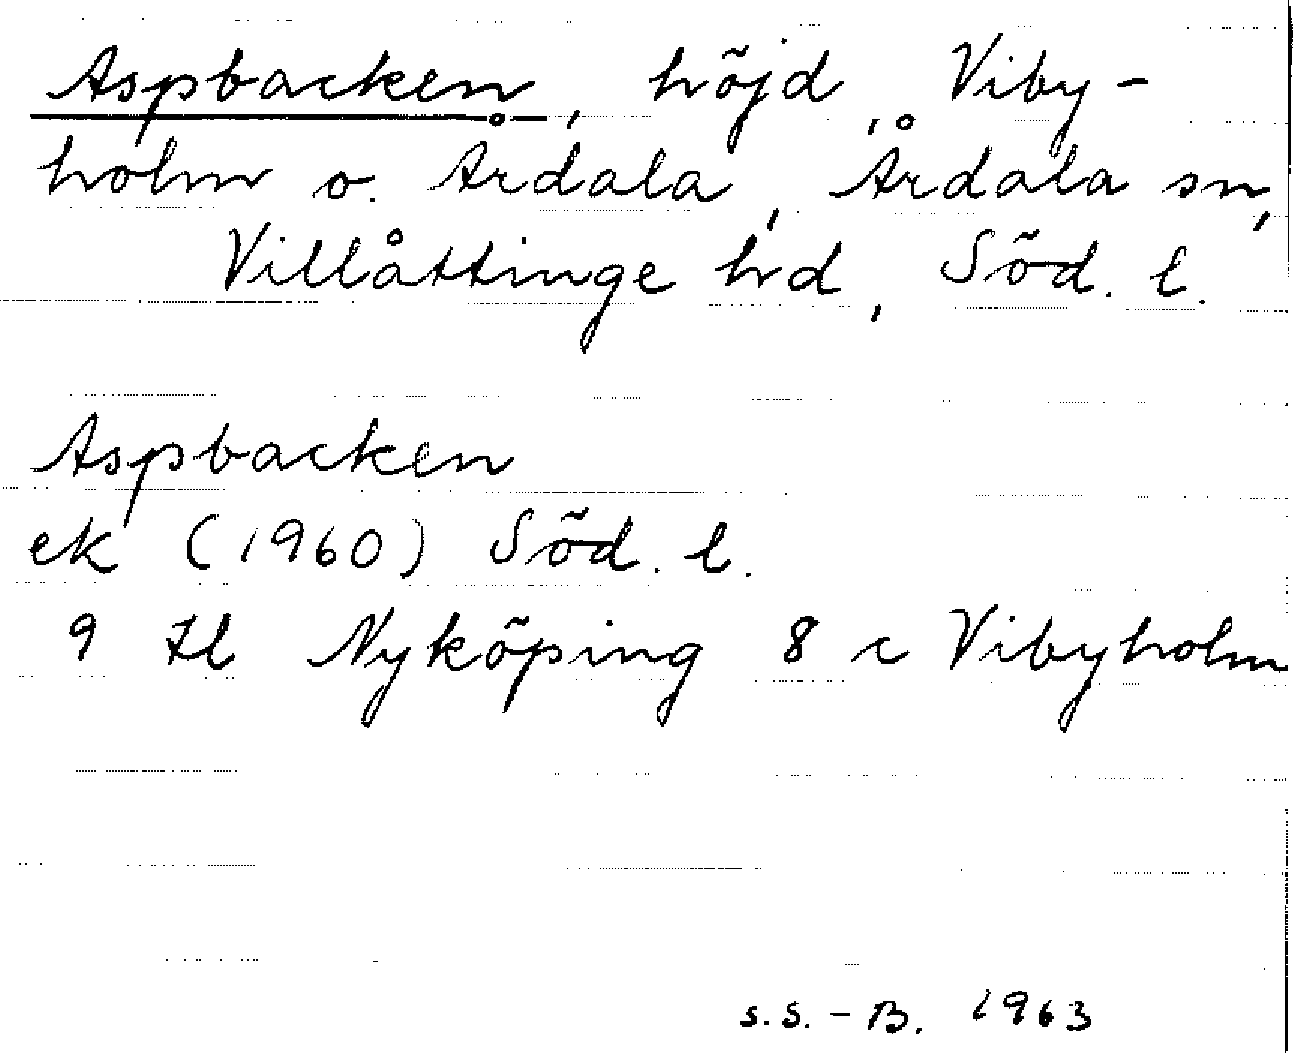 Aspbacken, höjd, Viby-
holm o. Årdala, Årdala sn,
Villåttinge hd, Söd. l.
Aspbacken
ek (1960) Söd. l.
9 tl Nyköping 8 c Vibyholm
S.S.-B. 1963